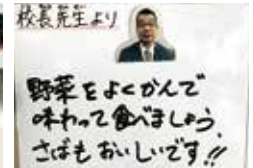 校長先生より
野菜をよくかんで
味わって食べましょう。
さばもおいしいです!!